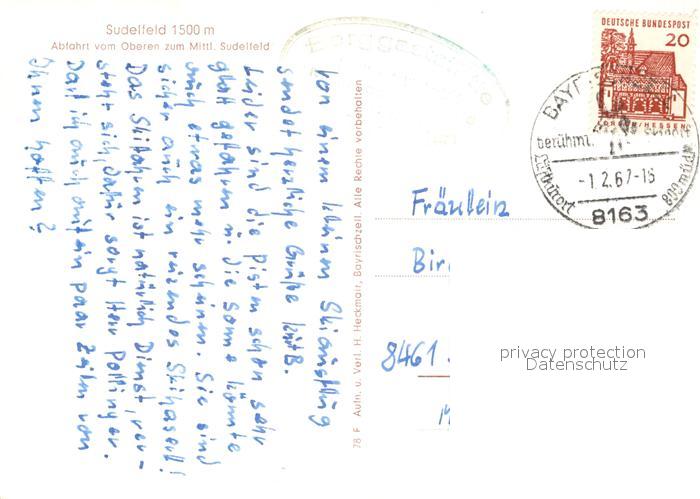 Sudelfeld 1500 m
Abfahrt vom Oberen zum Mittl. Sudelfeld
Von einem kleinen Skiausflug
sendet herzliche Grüße
Leider sind die Pisten schon sehr
glatt gefahren u. die Sonne könnte
auch etwas mehr scheinen. Sie sind
sicher auch ein reizendes Skihaserl!
Das Skifahren ist natürlich Dienst, ver-
steht sich, dafür sorgt Herr Pollinger.
Darf ich auch auf ein paar Zeilen von
Ihnen hoffen?
78 F Aufn. u. Verl. H. Heckmair, Bayrischzell. Alle Rechte vorbehalten
DEUTSCHE BUNDESPOST
20
LORSCH/HESSEN
BAYR
berühmt
-1.2.67-16
Luftkurort
800 m ü.d.M.
8163
Fräulein
Bir
8461
privacy protection
Datenschutz